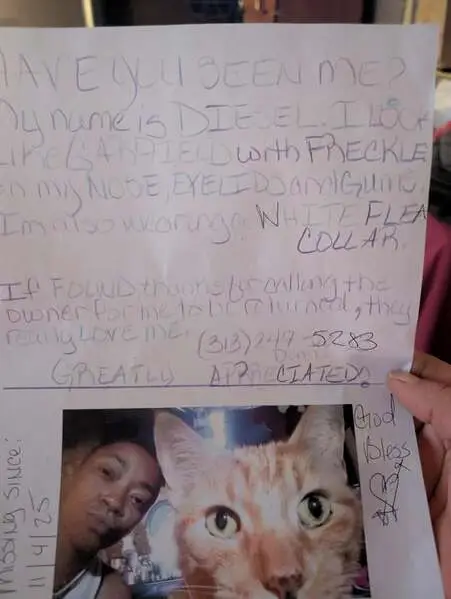 HAVE YOU SEEN ME?
My name is DIESEL. I LOOK
LIKE GARFIELD with FRECKLE
on my NOSE, EYELIDS and GUMS.
I'm also wearing a WHITE FLEA
COLLAR.
If FOUND thanks for calling the
owner for me to be returned, they
really LOVE ME.
(313) 247-5283
GREATLY APPRECIATED!
God
Bless
Missing Since:
11/4/25